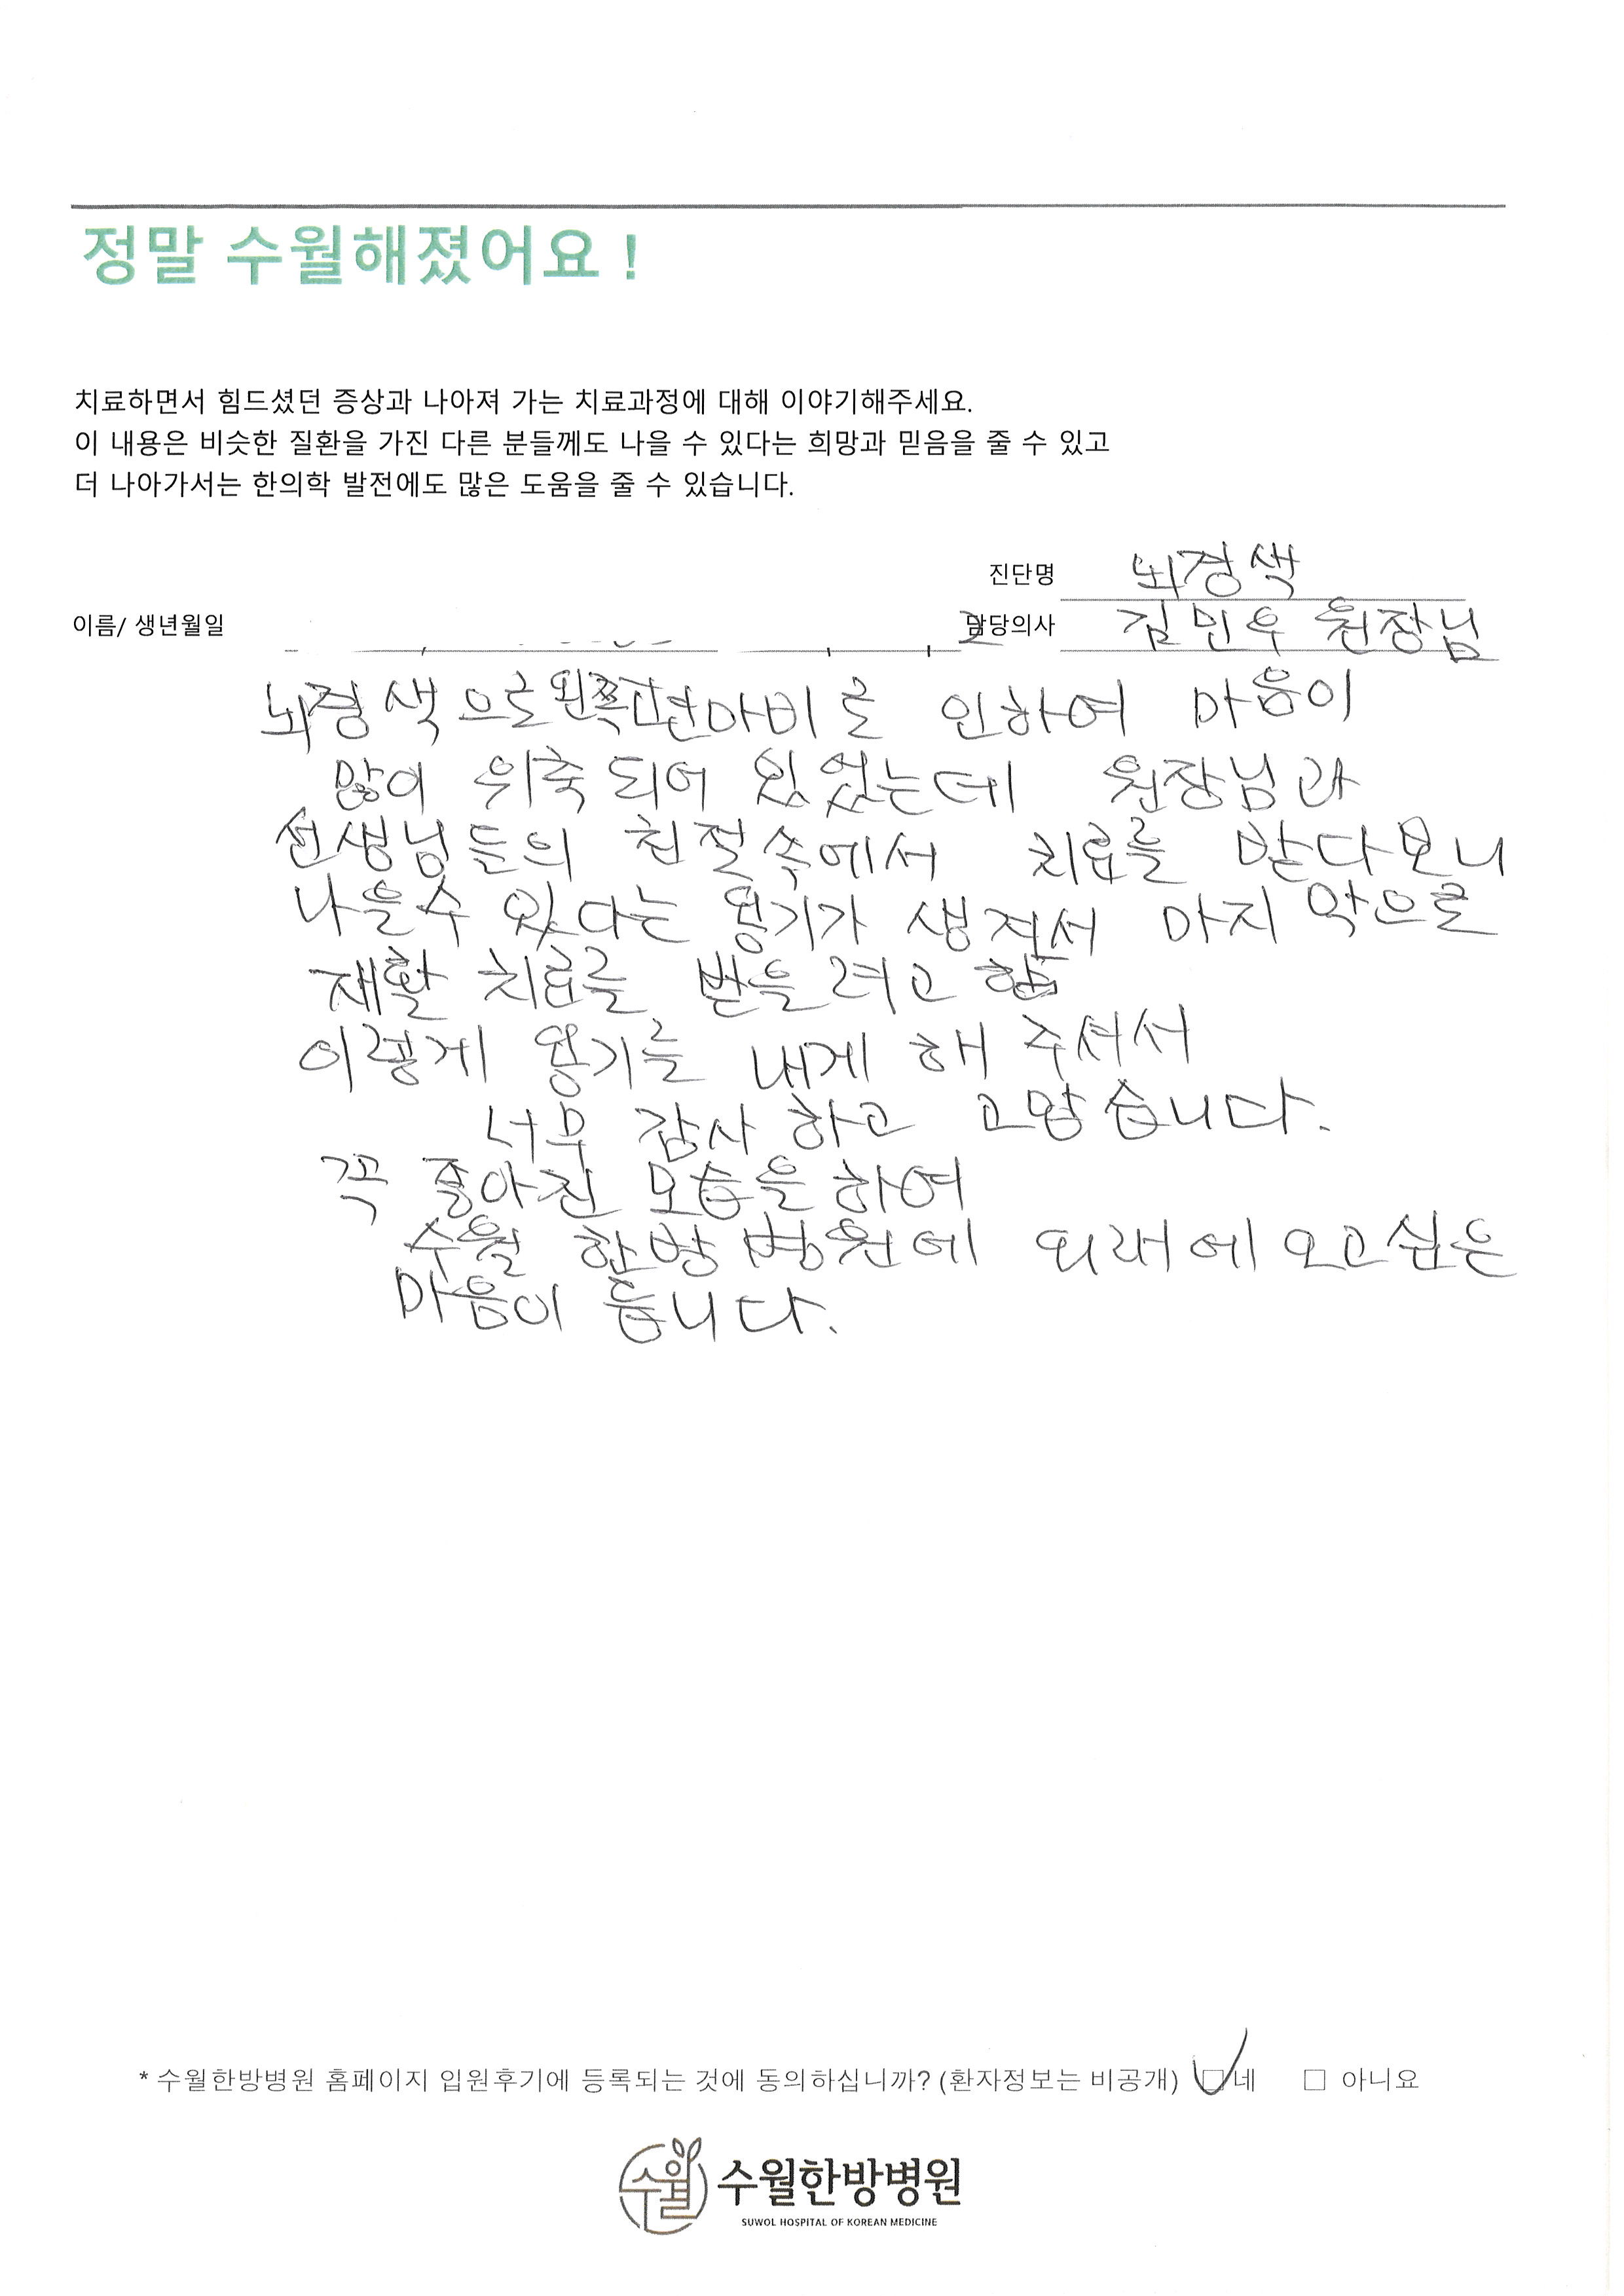 정말 수월해졌어요 !
치료하면서 힘드셨던 증상과 나아져 가는 치료과정에 대해 이야기해주세요.
이 내용은 비슷한 질환을 가진 다른 분들께도 나을 수 있다는 희망과 믿음을 줄 수 있고
더 나아가서는 한의학 발전에도 많은 도움을 줄 수 있습니다.
진단명 뇌경색
이름/ 생년월일 담당의사 김민우 원장님
뇌경색으로 왼쪽편마비로 인하여 마음이
많이 위축되어 있었는데 원장님과
선생님들의 친절속에서 치료를 받다보니
나을수 있다는 용기가 생겨서 마지막으로
재활 치료를 받을려고 함
이렇게 용기를 내게 해 주셔서
너무 감사하고 고맙습니다.
꼭 좋아진 모습을 하여
수월 한방병원에 외래에 오고싶은
마음이 듭니다.
* 수월한방병원 홈페이지 입원후기에 등록되는 것에 동의하십니까? (환자정보는 비공개) ☑네 □ 아니요
수월 수월한방병원
SUWOL HOSPITAL OF KOREAN MEDICINE